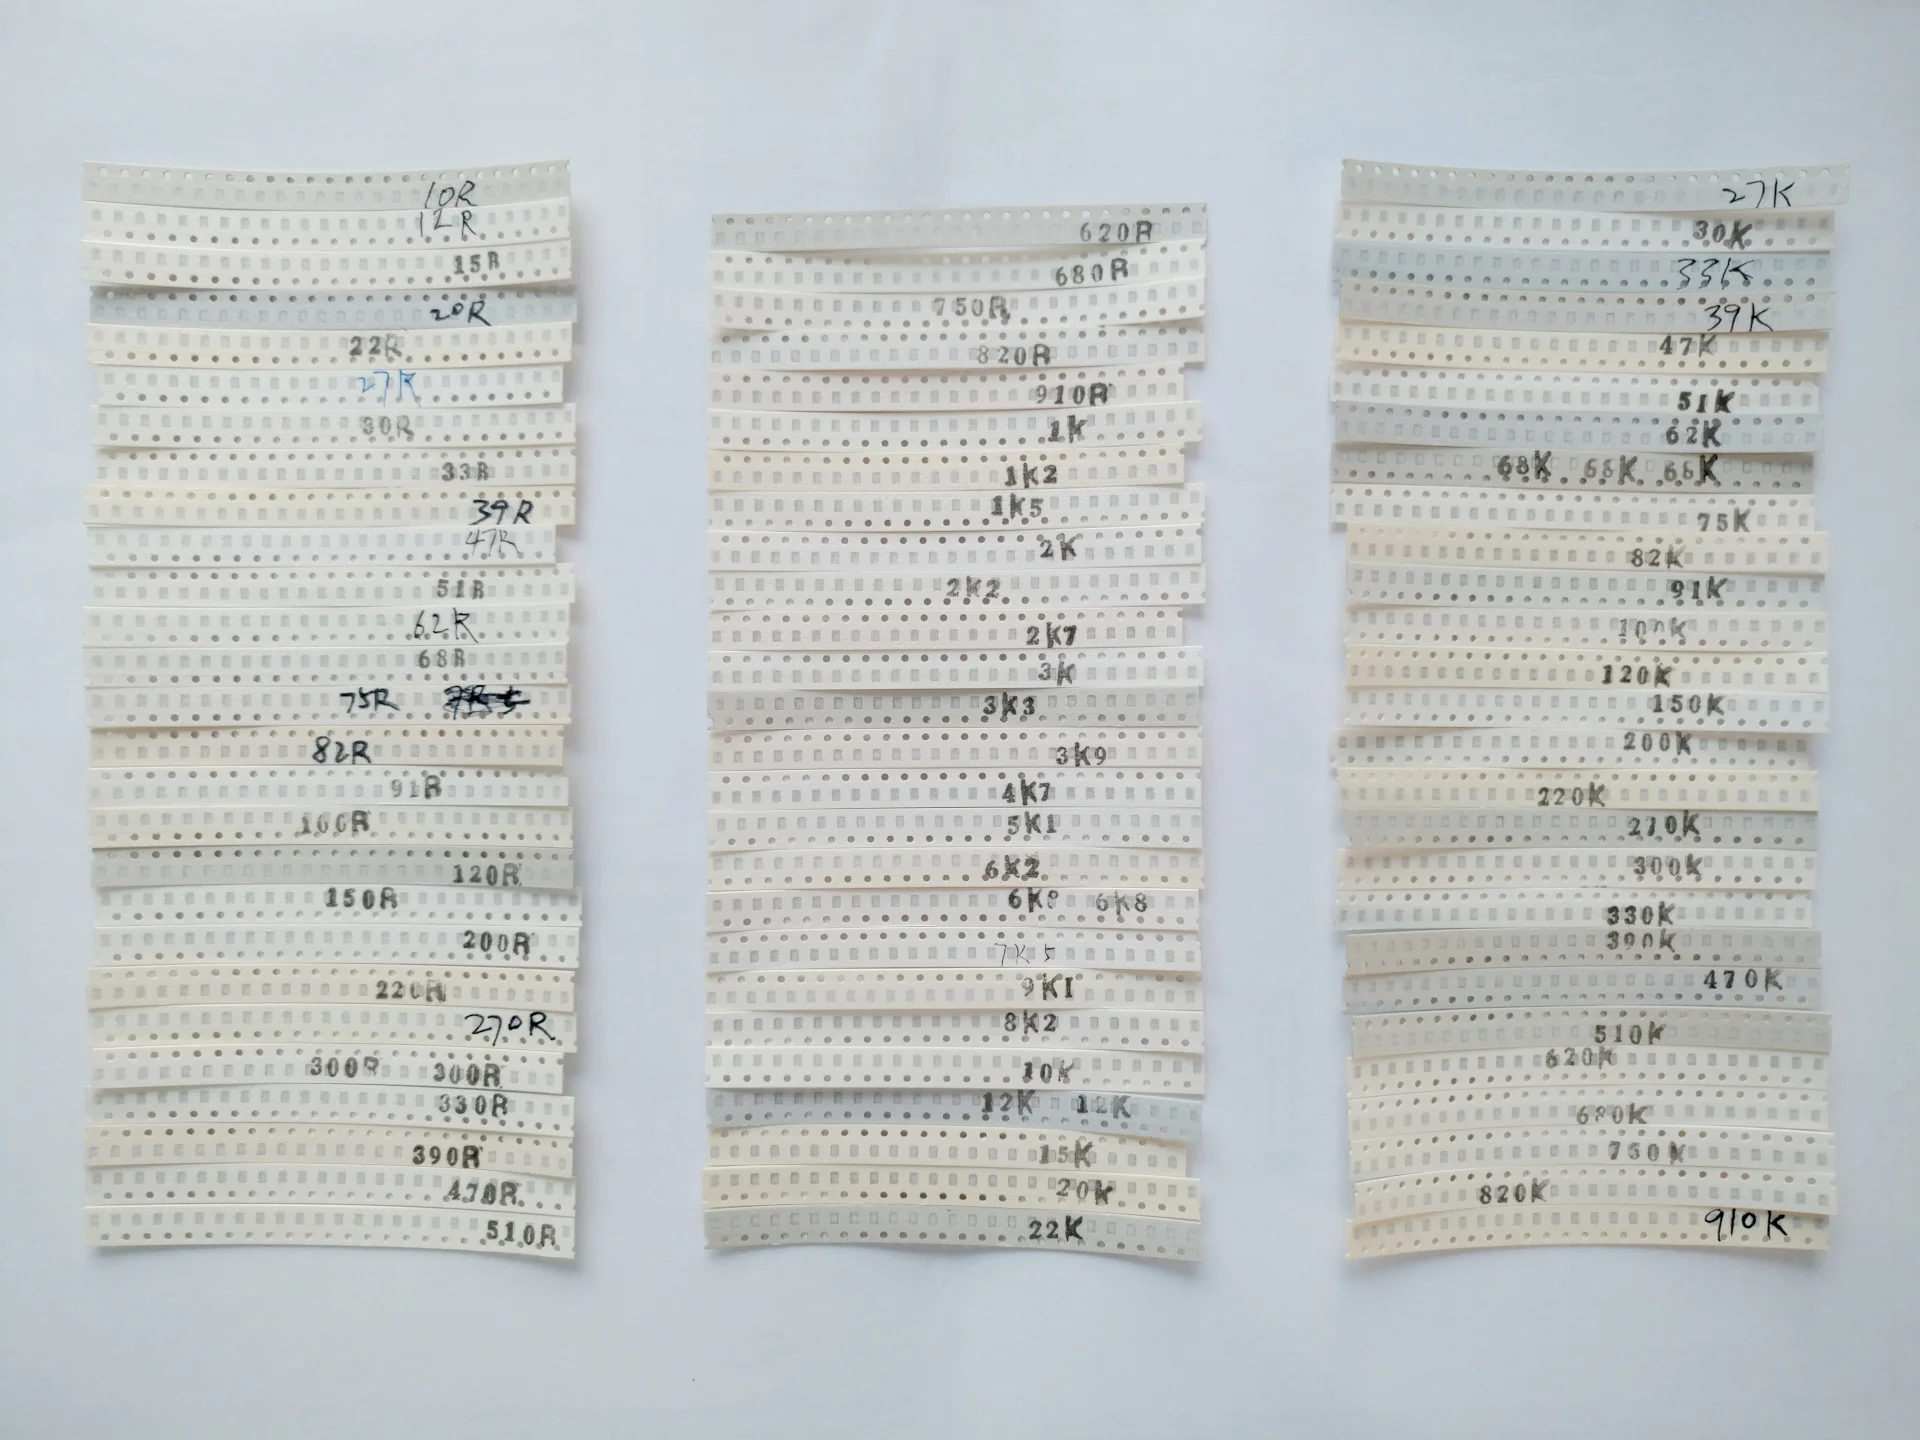 10R
12R
15R
20R
22R
27K
30R
33R
39R
47R
51R
62R
68R
75R
82R
91R
100R
120R
150R
200R
220R
270R
300R 300R
330R
390R
470R
510R
620R
680R
750R
820R
910R
1K
1K2
1K5
2K
2K2
2K7
3K
3K3
3K9
4K7
5K1
6K2
6K8 6K8
7K5
9K1
8K2
10K
12K 12K
15K
20K
22K
27K
30K
33K
39K
47K
51K
62K
68K 68K 68K
75K
82K
91K
100K
120K
150K
200K
220K
270K
300K
330K
390K
470K
510K
620K
680K
750K
820K
910K